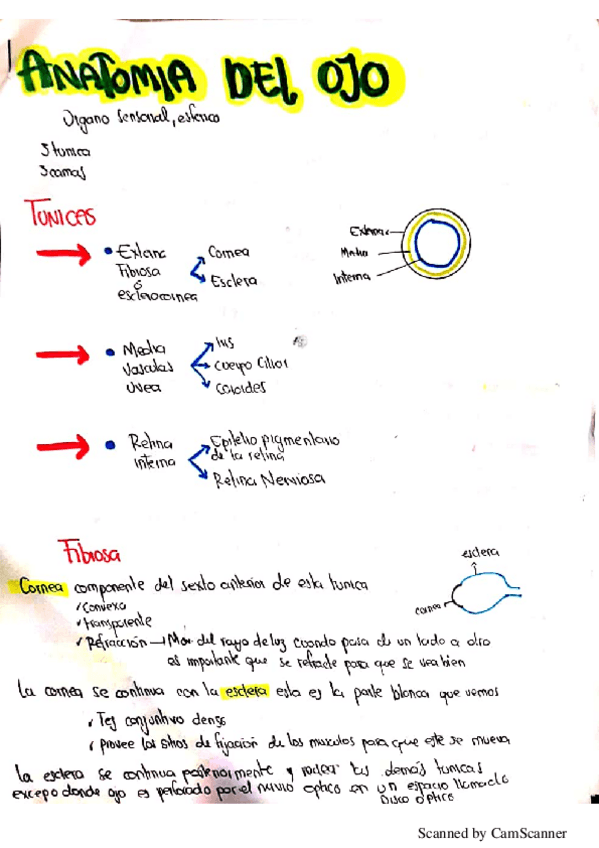 ANATOMIA DEL OJO
Organo sensorial, esferico
3 tunica
3 camas
TUNICES
Externa
Fibrosa
o
esclerocornea
Cornea
Esclera
Externa
Media
Interna
Media
vascular
uvea
Iris
Cuerpo Ciliar
Coroides
Retina
interna
Epitelio pigmentario
de la retina
Retina Nerviosa
Fibrosa
Cornea componente del sexto anterior de esta tunica
✓ Convexa
✓ transparente
✓ Refracción → Mov del rayo de luz cuando pasa de un lado a otro
es importante que se refracte para que se vea bien
esclera
cornea
La cornea se continua con la esclera esta es la parte blanca que vemos
✓ Tej conjuntivo denso
✓ provee los sitios de fijación de los musculos para que este se mueva
La esclera se continua posteriormente y rodea las demás tunicas
excepto donde ojo es perforado por el nervio optico en un espacio llamado
Disco óptico
Scanned by CamScanner